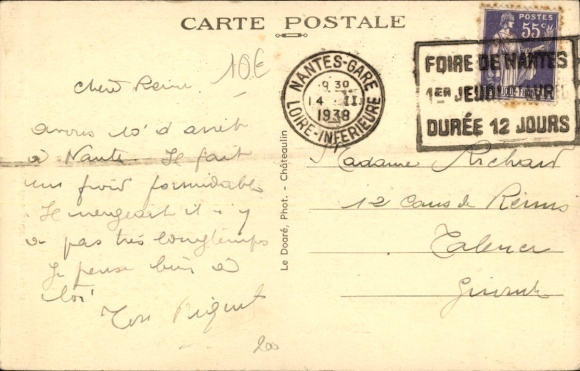 CARTE POSTALE
10€
Chère Reine
avons 10' d'arrêt
à Nantes. Il fait
un froid formidable
Il neigeait il y
a pas très longtemps
Je pense bien à
toi
Ton
200
Le Doaré, Phot. - Châteaulin
NANTES-GARE
9 30
14 II
1938
LOIRE-INFERIEURE
POSTES
55c
FOIRE DE NANTES
1ER JEUDI AVRIL
DURÉE 12 JOURS
Madame Richard
12 Cours de Reims
Talence
Gironde